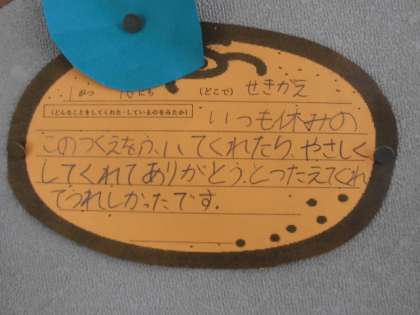 がつ にち (どこで) せきがえ
(どんなことをしてくれた・しているのをみたか) いつも休みの
このつくえをふいてくれたり、やさしく
してくれてありがとう、とつたえてくれ
てうれしかったです。